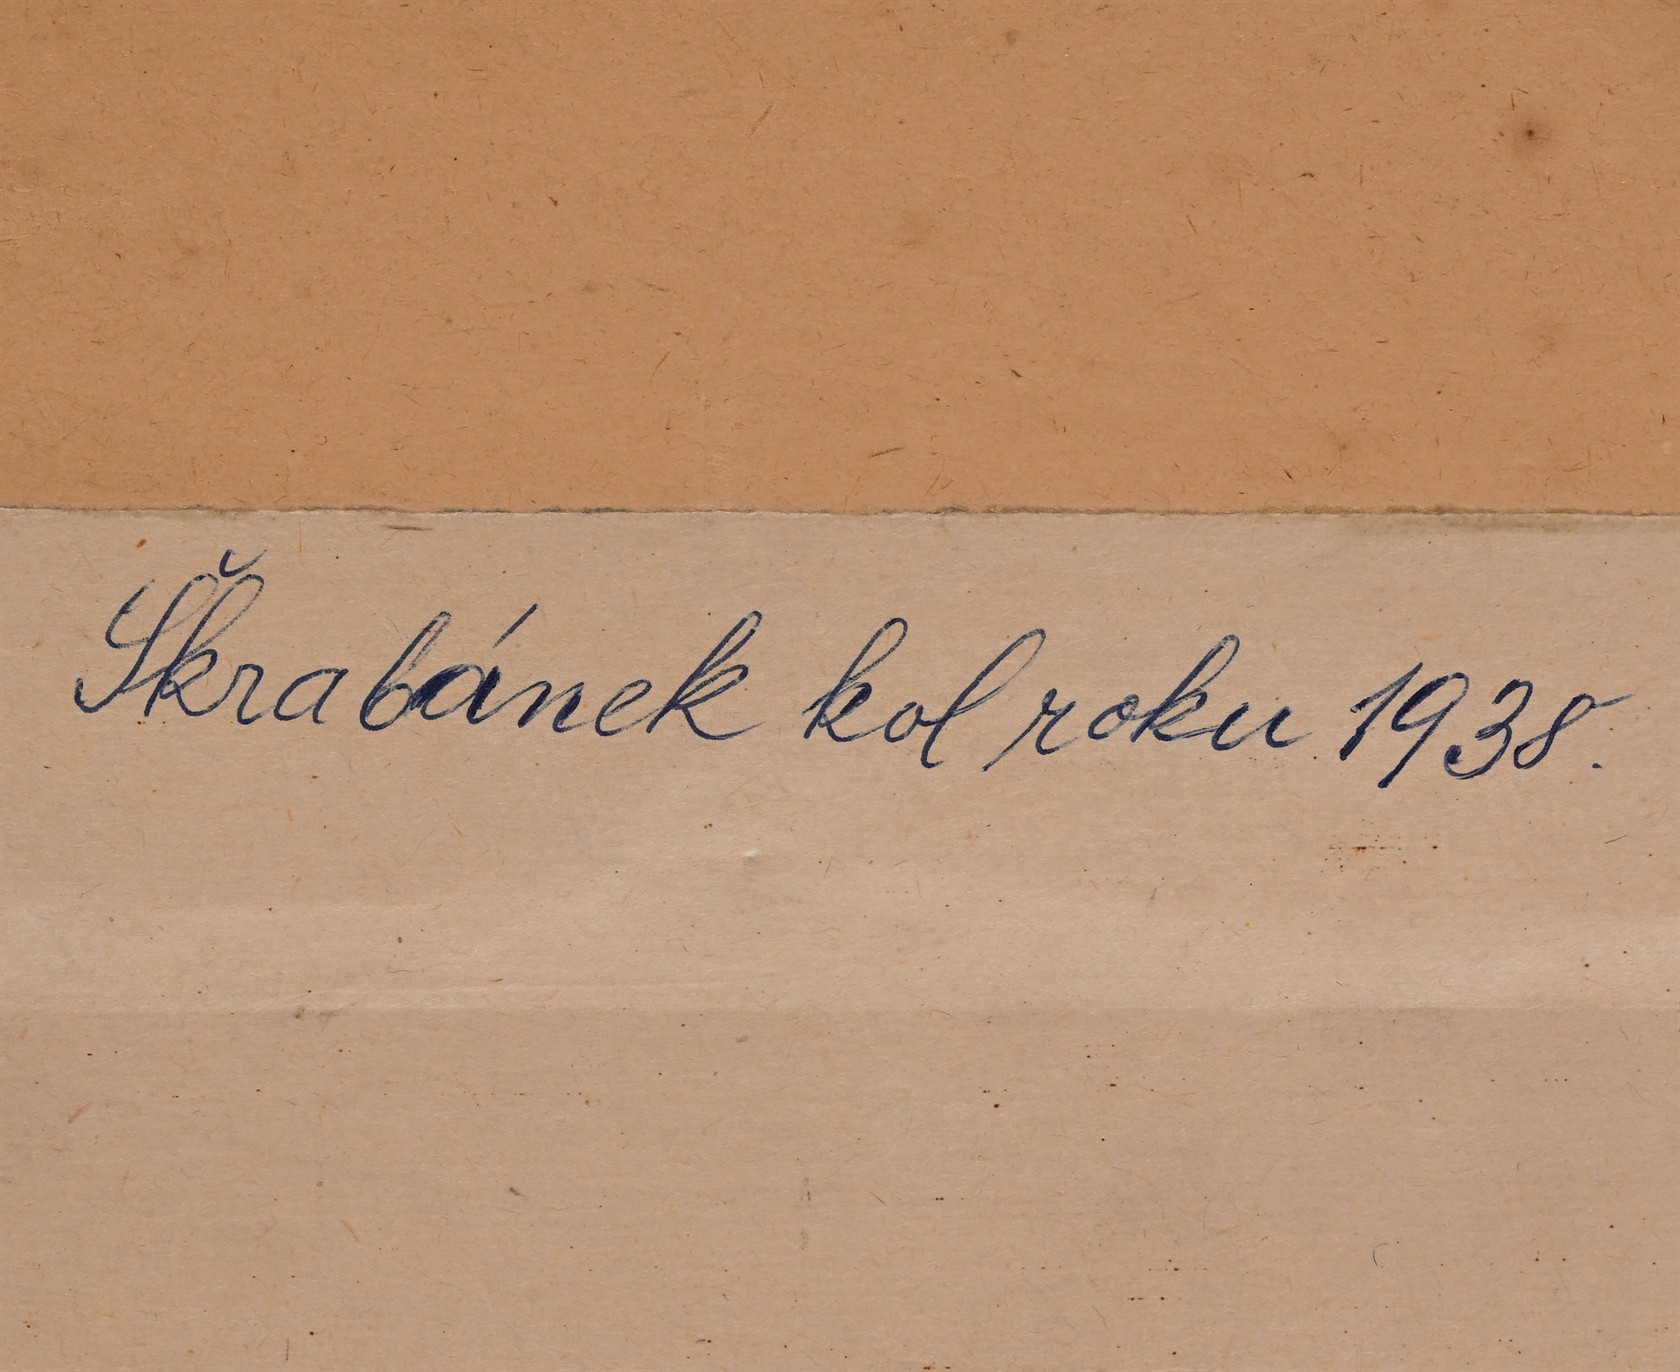 Škrabánek kol roku 1938.